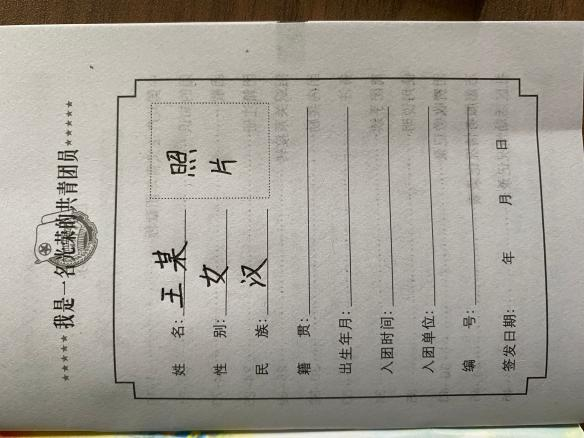 ★★★★★我是一名光荣的共青团员★★★★★
照片
姓 名:王某
性 别:女
民 族:汉
籍 贯:
出生年月:
入团时间:
入团单位:
编 号:
签发日期: 年 月 日